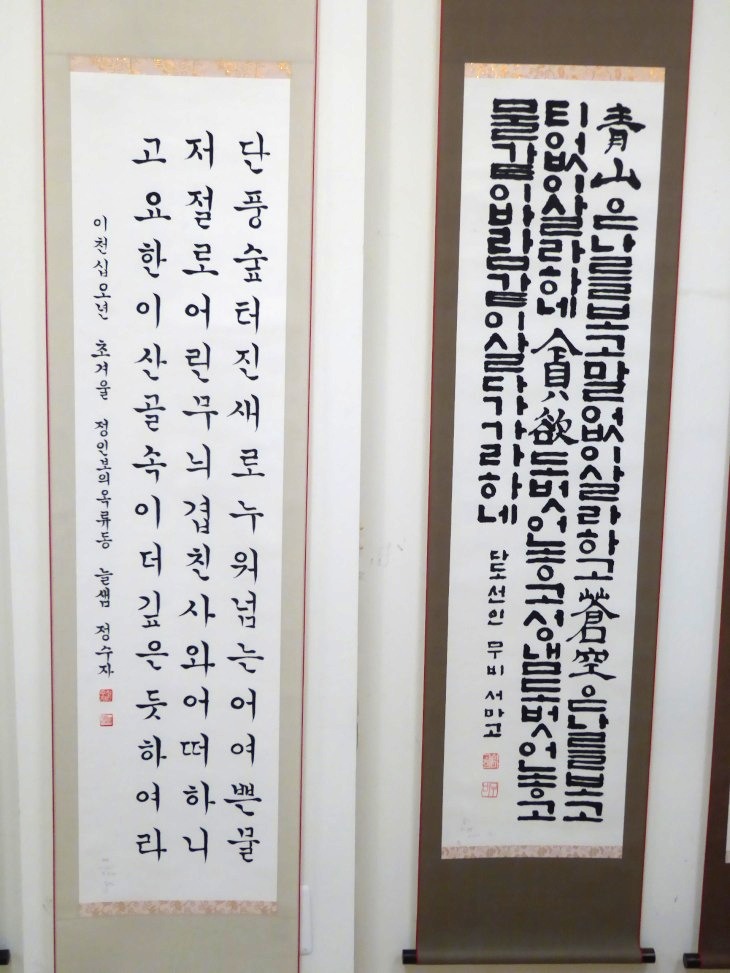 단풍숲터진새로누워넘는어여쁜물
저절로어린무늬겹친사와어떠하니
고요한이산골속이더깊은듯하여라
이천십오년 초겨울 정인보의옥류동 늘샘 정수자
青山은나를보고말없이살라하고蒼空은나를보고
티없이살라하네貪欲도벗어놓고성냄도벗어놓고
물같이바람같이살다가가라하네
무비 서마고